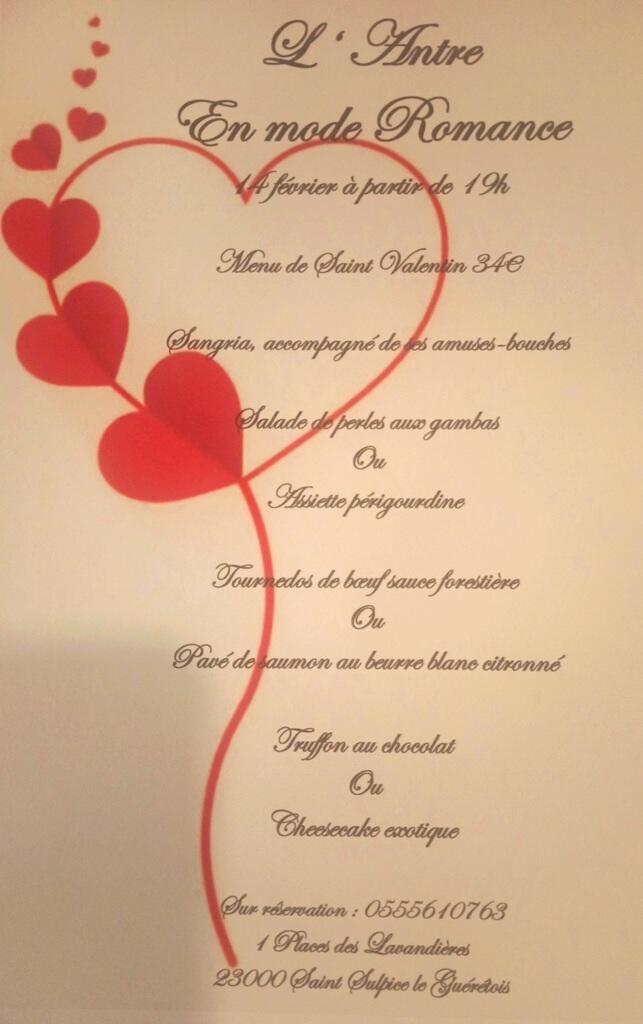 L'Antre
En mode Romance
14 février à partir de 19h
Menu de Saint Valentin 34€
Sangria, accompagné de ses amuses-bouches
Salade de perles aux gambas
Ou
Assiette périgourdine
Tournedos de bœuf sauce forestière
Ou
Pavé de saumon au beurre blanc citronné
Truffon au chocolat
Ou
Cheesecake exotique
Sur réservation : 0555610763
1 Places des Lavandières
23000 Saint Sulpice le Guérétois